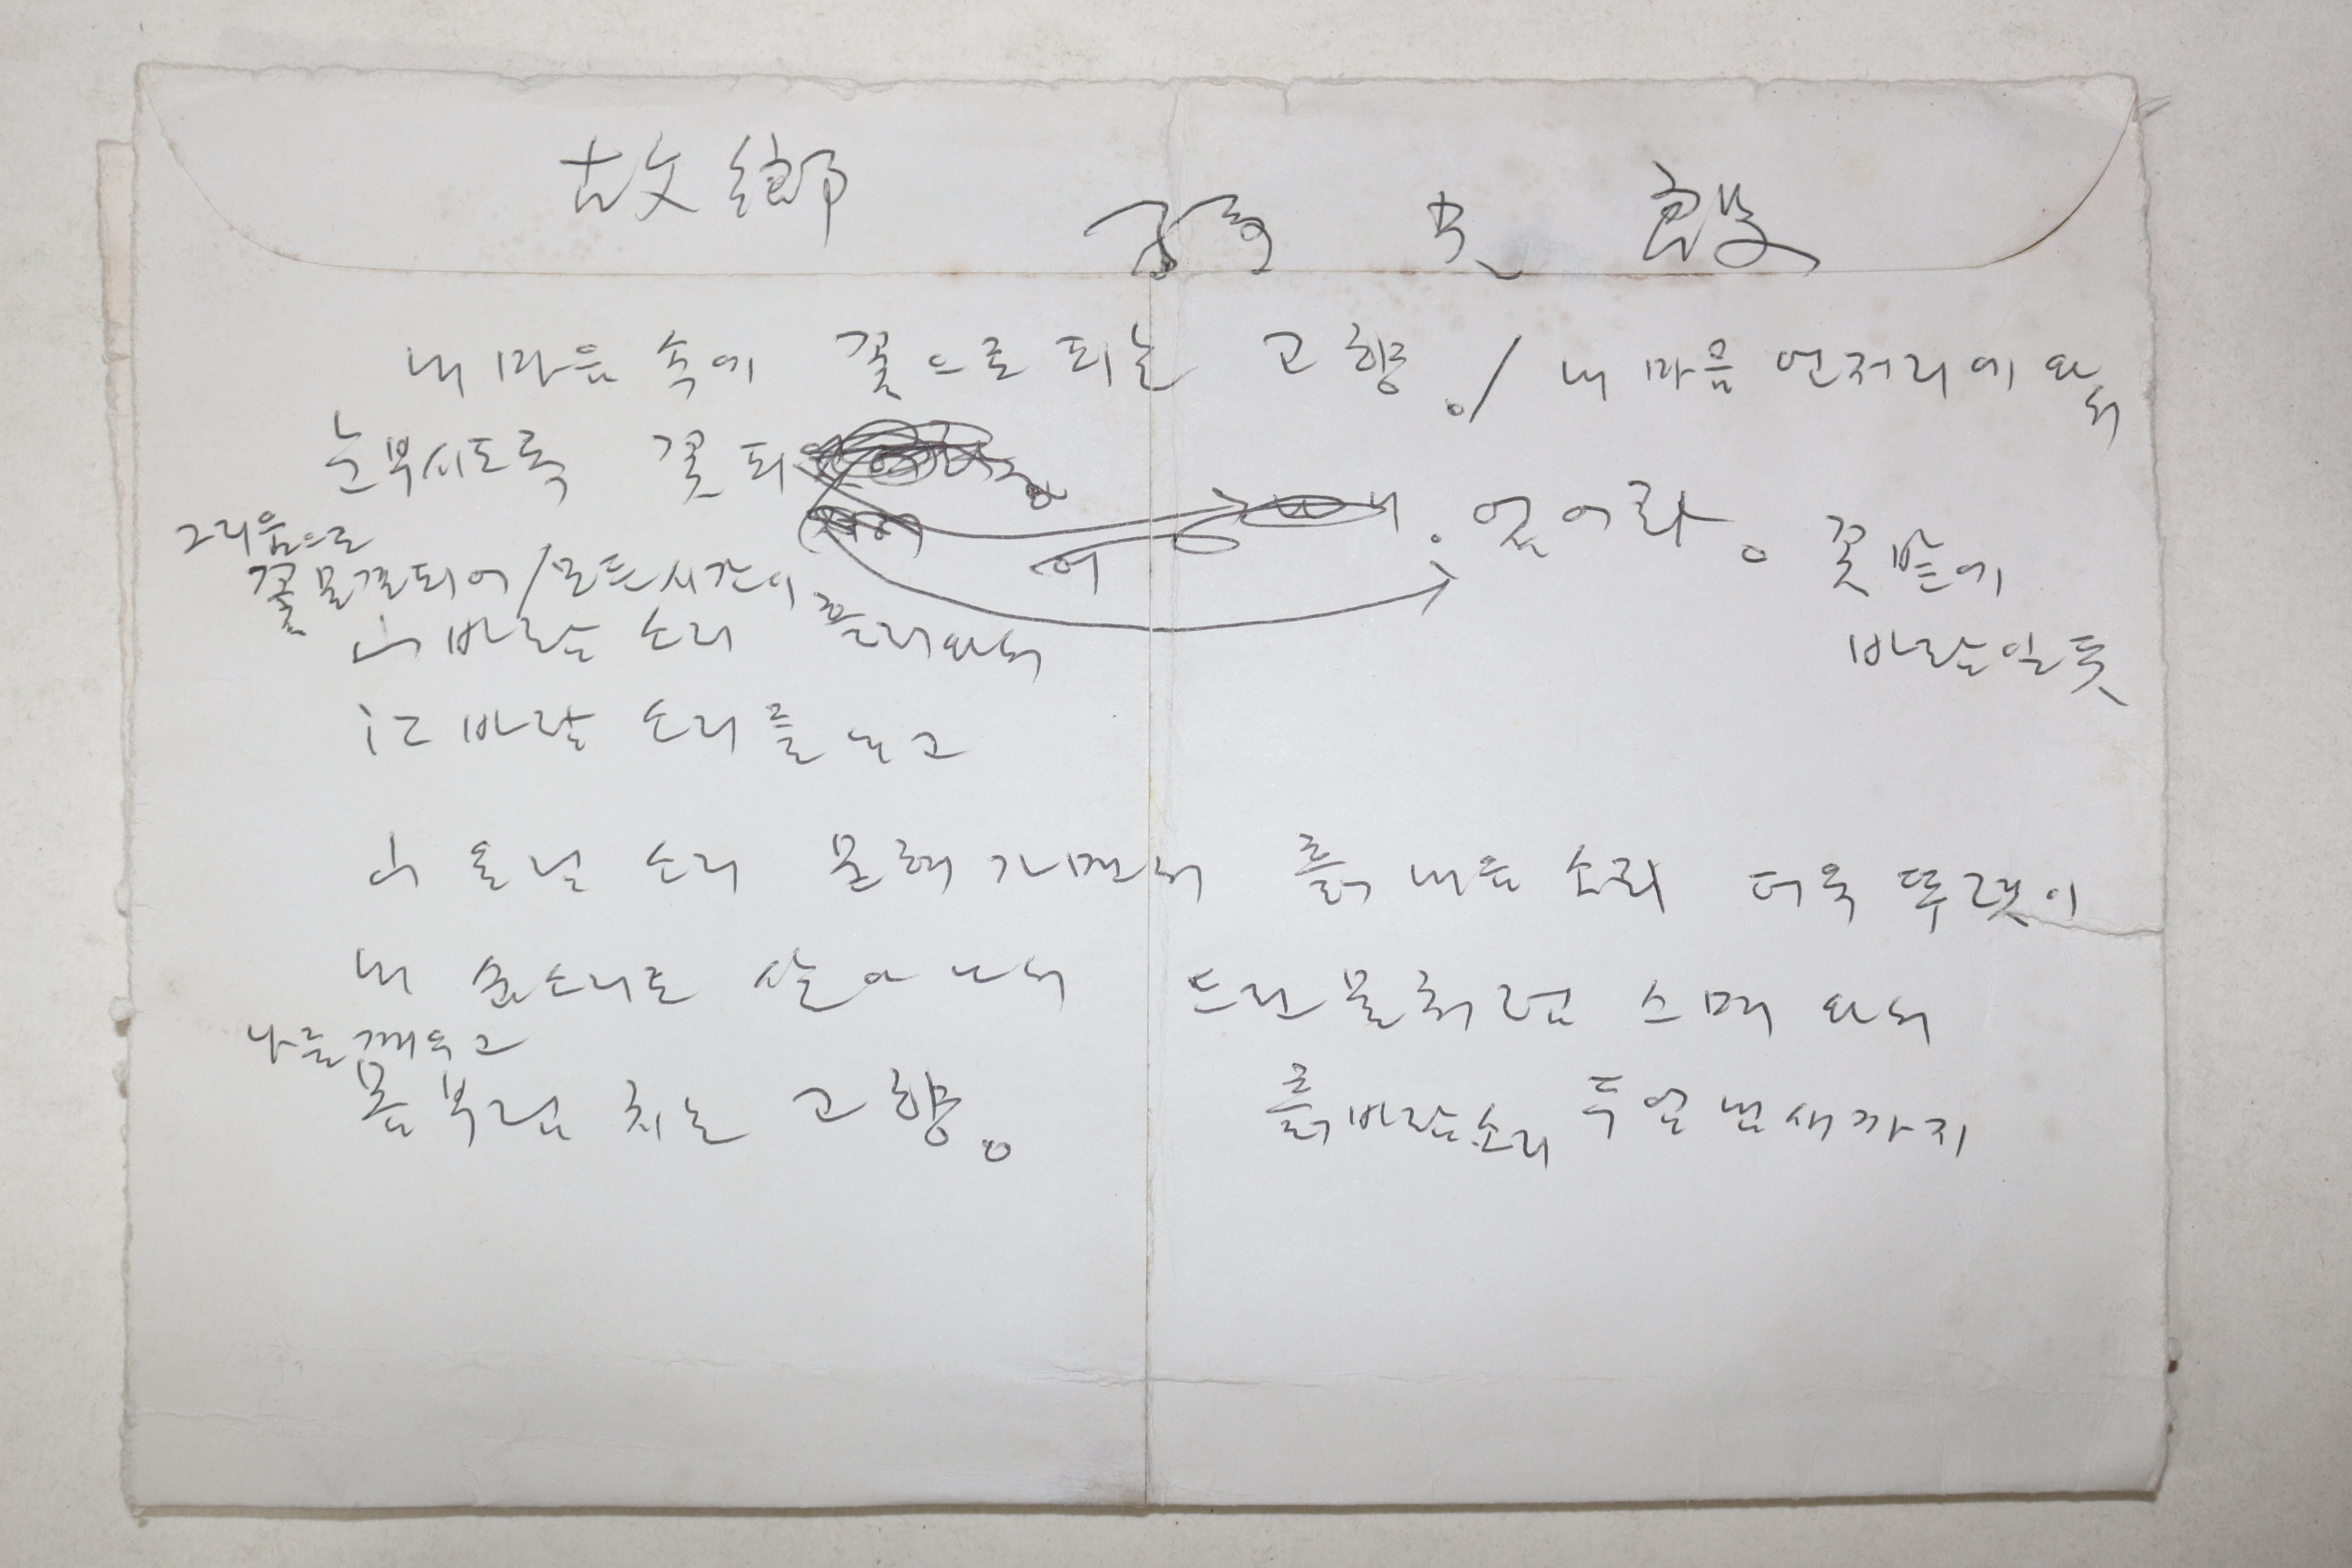 故鄕
내 마음 속에 꽃으로 피는 고향。/ 내 마음 언저리에 와서
눈부시도록 꽃피
어 있어라。 꽃밭에
바람일듯
그리움으로
꽃물결되어/모든시간이
山바람 소리 풀려와서
江바람 소리를 놓고
山 소리 묻혀가면서 흙 내음 소리 더욱 뚜렷이
내 숨소리로 살아나서 드린물처럼 스며와서
나를 깨우고
몸부림 치는 고향。 흙바람소리 두엄냄새까지